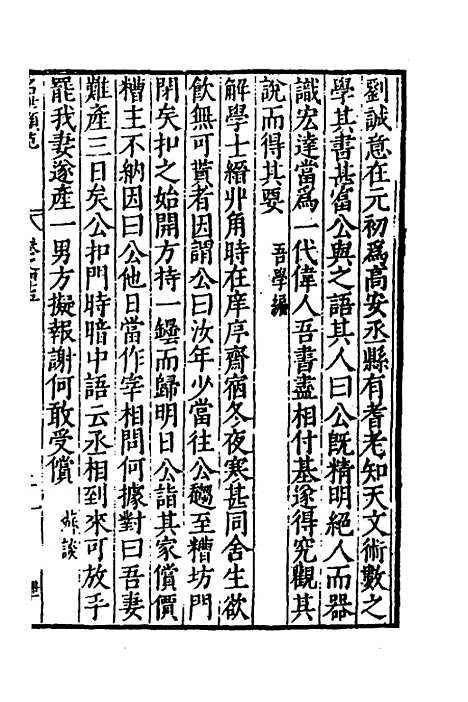 劉誠意在元初爲高安丞縣有耆老知天文術數之
學其書甚富公與之語其人曰公旣精明絕人而器
識宏達當爲一代偉人吾書盡相付基遂得究觀其
說而得其要 吾學編
解學士縉丱角時在庠序齋宿冬夜寒甚同舍生欲
飮無可貰者因謂公曰汝年少當往公趨至糟坊門
閉矣扣之始開方持一罍而歸明日公詣其家償價
糟主不納因曰公他日當作宰相問何據對曰吾妻
難產三日矣公扣門時暗中語云丞相到來可放乎
罷我妻遂產一男方擬報謝何敢受償